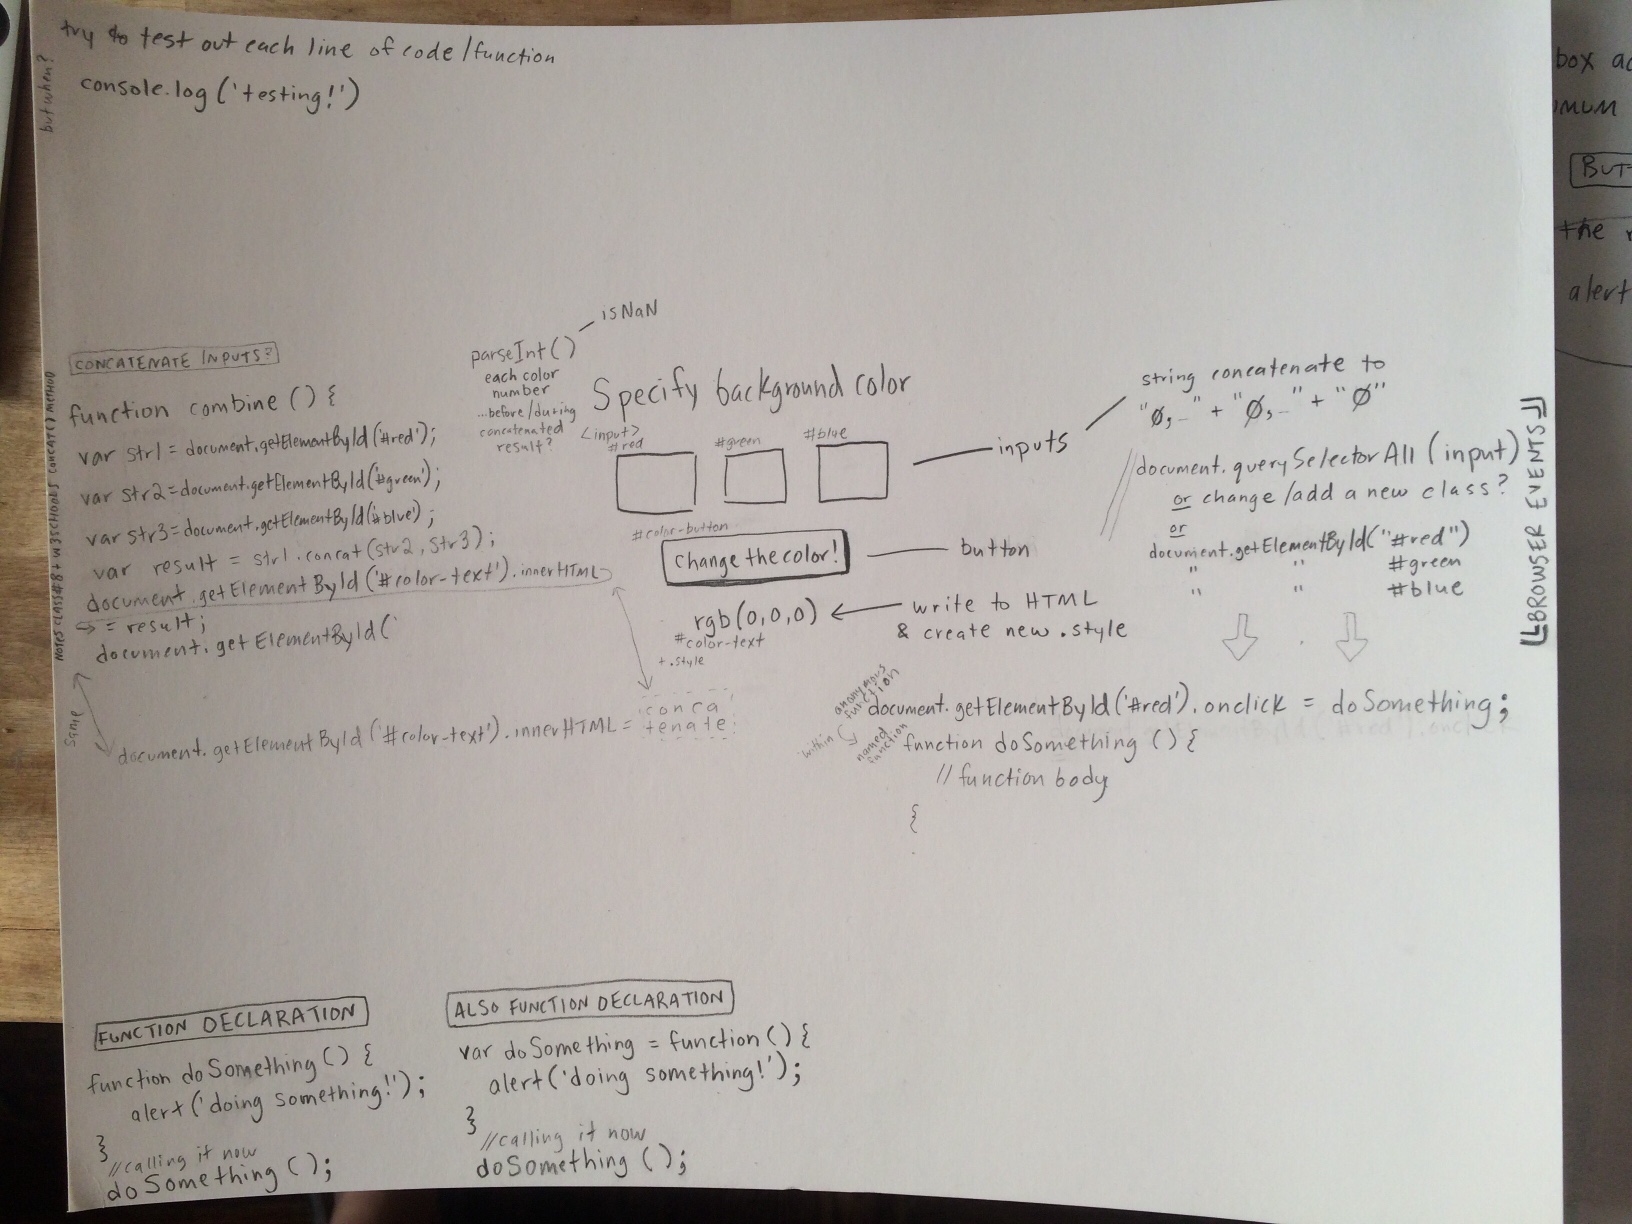 try to test out each line of code/function
but when?
console.log('testing!')
box
BUT
the
alert
isNaN
parseInt()
each color
number
...before/during
concatenated
result?
CONCATENATE INPUTS?
NOTES CLASS#8 + W3SCHOOLS CONCAT() METHOD
function combine () {
var str1 = document.getElementById('#red');
var str2 = document.getElementById('#green');
var str3 = document.getElementById('#blue');
var result = str1.concat(str2, str3);
document.getElementById('#color-text').innerHTML
= result;
document.getElementById('
same
document.getElementById('#color-text').innerHTML =
conca
tenate
Specify background color
<input>
#red
#green
#blue
inputs
#color-button
change the color!
button
rgb(0,0,0)
#color-text
+ .style
write to HTML
& create new .style
string concatenate to
"0,_" + "0,_" + "0"
document.querySelectorAll(input)
or change/add a new class?
or
document.getElementById("#red")
" " #green
" " #blue
BROWSER EVENTS
anonymous
function
within
named
function
document.getElementById('#red').onclick = doSomething;
function doSomething () {
// function body
{
FUNCTION DECLARATION
function doSomething () {
alert('doing something!');
}
//calling it now
doSomething ();
ALSO FUNCTION DECLARATION
var doSomething = function () {
alert('doing something!');
}
//calling it now
doSomething ();